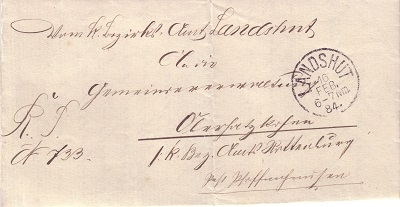 Vom k. Bezirks-Amt Landshut
An die
Gemeindeverwaltung
R. S.
Oberhatzkofen
N 733.
k. Bez. Amts Rottenburg
Post Pfeffenhausen
LANDSHUT
16
FEB.
6-7 NM
84.